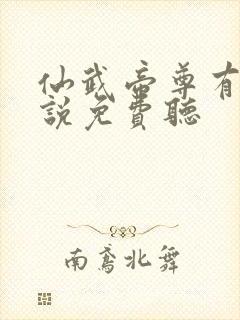 仙武帝尊有
說免費聽
南鳶北舞